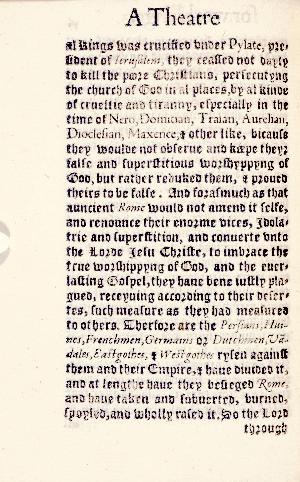 A Theatre
al Kings was crucified vnder Pylate, pre-
sident of Ierusalem, they ceassed not dayly
to kill the pore Christians, persecutyng
the church of God in al places, by al kinde
of crueltie and tiranny, especially in the
time of Nero, Domitian, Traian, Aurelian,
Dioclesian, Maxence, & other like, bicause
they woulde not obserue and kepe theyr
false and superstitious worshyppyng of
God, but rather rebuked them, & proued
theirs to be false. And forasmuch as that
auncient Rome would not amend it selfe,
and renounce their enorme vices, Idola-
trie and superstition, and conuerte vnto
the Lorde Jesu Christe, to imbrace the
true worshippyng of God, and the euer-
lasting Gospel, they haue bene iustly pla-
gued, receyuing according to their deser-
tes, such measure as they had measured
to others. Therfore are the Persians, Hui-
nes, Frenchmen, Germains or Dutchmen, Vā-
dales, Eastgothes, & Westgothes rysen against
them and their Empire, & haue diuided it,
and at lengthe haue they besieged Rome,
and haue taken and subuerted, burned,
spoyled, and wholly rased it. So the Lord
through